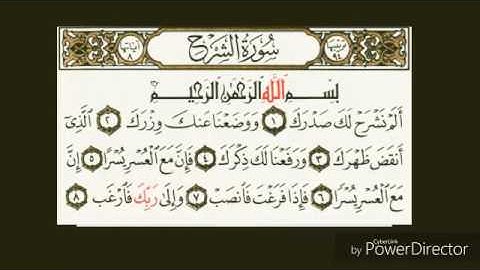 سُورَةُ الشَّرْحِ
بِسْمِ اللَّهِ الرَّحْمَٰنِ الرَّحِيمِ
أَلَمْ نَشْرَحْ لَكَ صَدْرَكَ ١ وَوَضَعْنَا عَنكَ وِزْرَكَ ٢ الَّذِي
أَنقَضَ ظَهْرَكَ ٣ وَرَفَعْنَا لَكَ ذِكْرَكَ ٤ فَإِنَّ مَعَ الْعُسْرِ يُسْرًا ٥ إِنَّ
مَعَ الْعُسْرِ يُسْرًا ٦ فَإِذَا فَرَغْتَ فَانصَبْ ٧ وَإِلَىٰ رَبِّكَ فَارْغَب ٨
by CyberLink PowerDirector